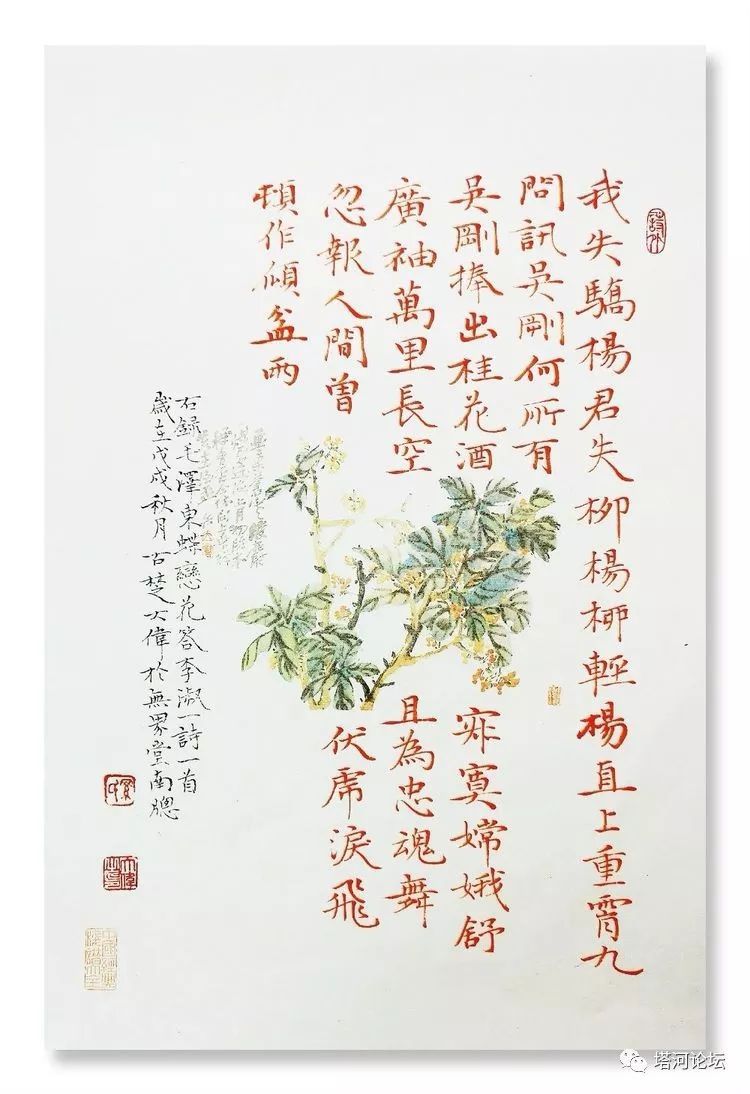 我失驕楊君失柳楊柳輕楊直上重霄九
問訊吳剛何所有
吳剛捧出桂花酒
寂寞嫦娥舒
廣袖萬里長空
且為忠魂舞
忽報人間曾
伏虎淚飛
頓作傾盆雨
右録毛澤東蝶戀花答李淑一詩一首
歲在戊戌秋月古楚大偉於無界堂南牕
塔河论坛